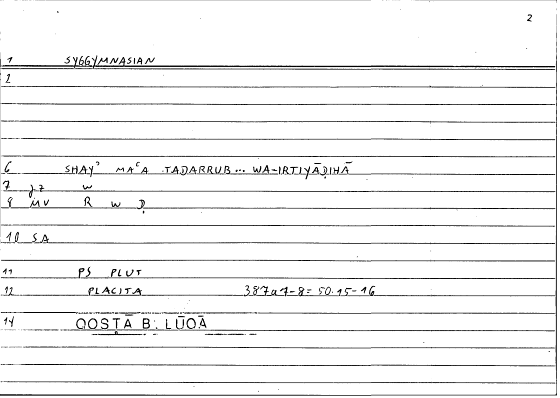 2
1 SYGGYMNASIAN
2
6 SHAYʾ MAʿA TADARRUB... WA-IRTIYĀḌIHĀ
7 jz w
8 MV R W Ḍ
10 SA
11 PS PLUT
12 PLACITA 387a7-8 = 50.15-16
14 QOSṬĀ B. LŪQĀ